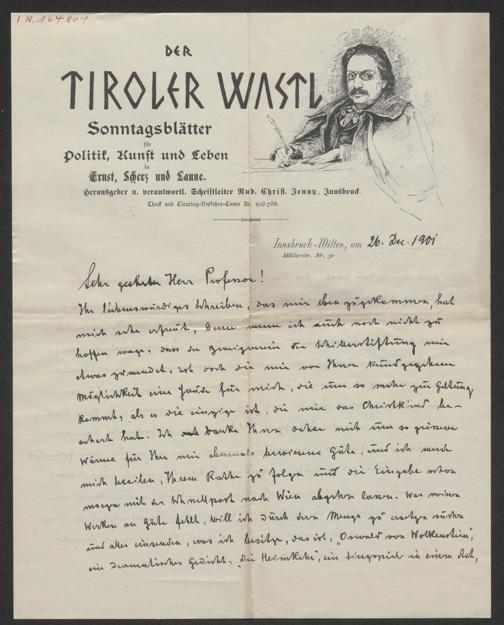 I.N. 164.809
DER
TIROLER WASTL
Sonntagsblätter
für
Politik, Kunst und Leben
in
Ernst, Scherz und Laune.
Herausgeber u. verantwortl. Schriftleiter Rud. Christ. Jenny, Innsbruck.
Check und Clearing-Verkehrs-Conto Nr. 850.786.
Innsbruck-Wilten, am 26. Dec. 1901
Müllerstr. Nr. 30
Sehr geehrter Herr Professor!
Ihr liebenswürdiges Schreiben, das mir eben zugekommen, hat
mich sehr erfreut, denn wenn ich auch noch nicht zu
hoffen wage, dass der Zweigverein der Schillerstiftung mir
etwas zuwendet, ist doch die mir von Ihnen kundgegebene
Möglichkeit eine Freude für mich, die um so mehr zur Geltung
kommt, als es die einzige ist, die mir das Christkind be-
schert hat. Ich danke Ihnen daher mit um so grösserer
Wärme für Ihre mir abermals bewiesene Güte, und ich werde
mich beeilen, Ihrem Rathe zu folgen und die Eingabe schon
morgen mit der Schnellpost nach Wien abgehen lassen. Was meinen
Werken an Güte fehlt, will ich durch deren Menge zu ersetzen suchen
und alles einsenden, was ich besitze, das ist, "Oswald von Wolkenstein",
ein dramatisches Gedicht, "Die Heimkehr", ein Singspiel in einem Act,